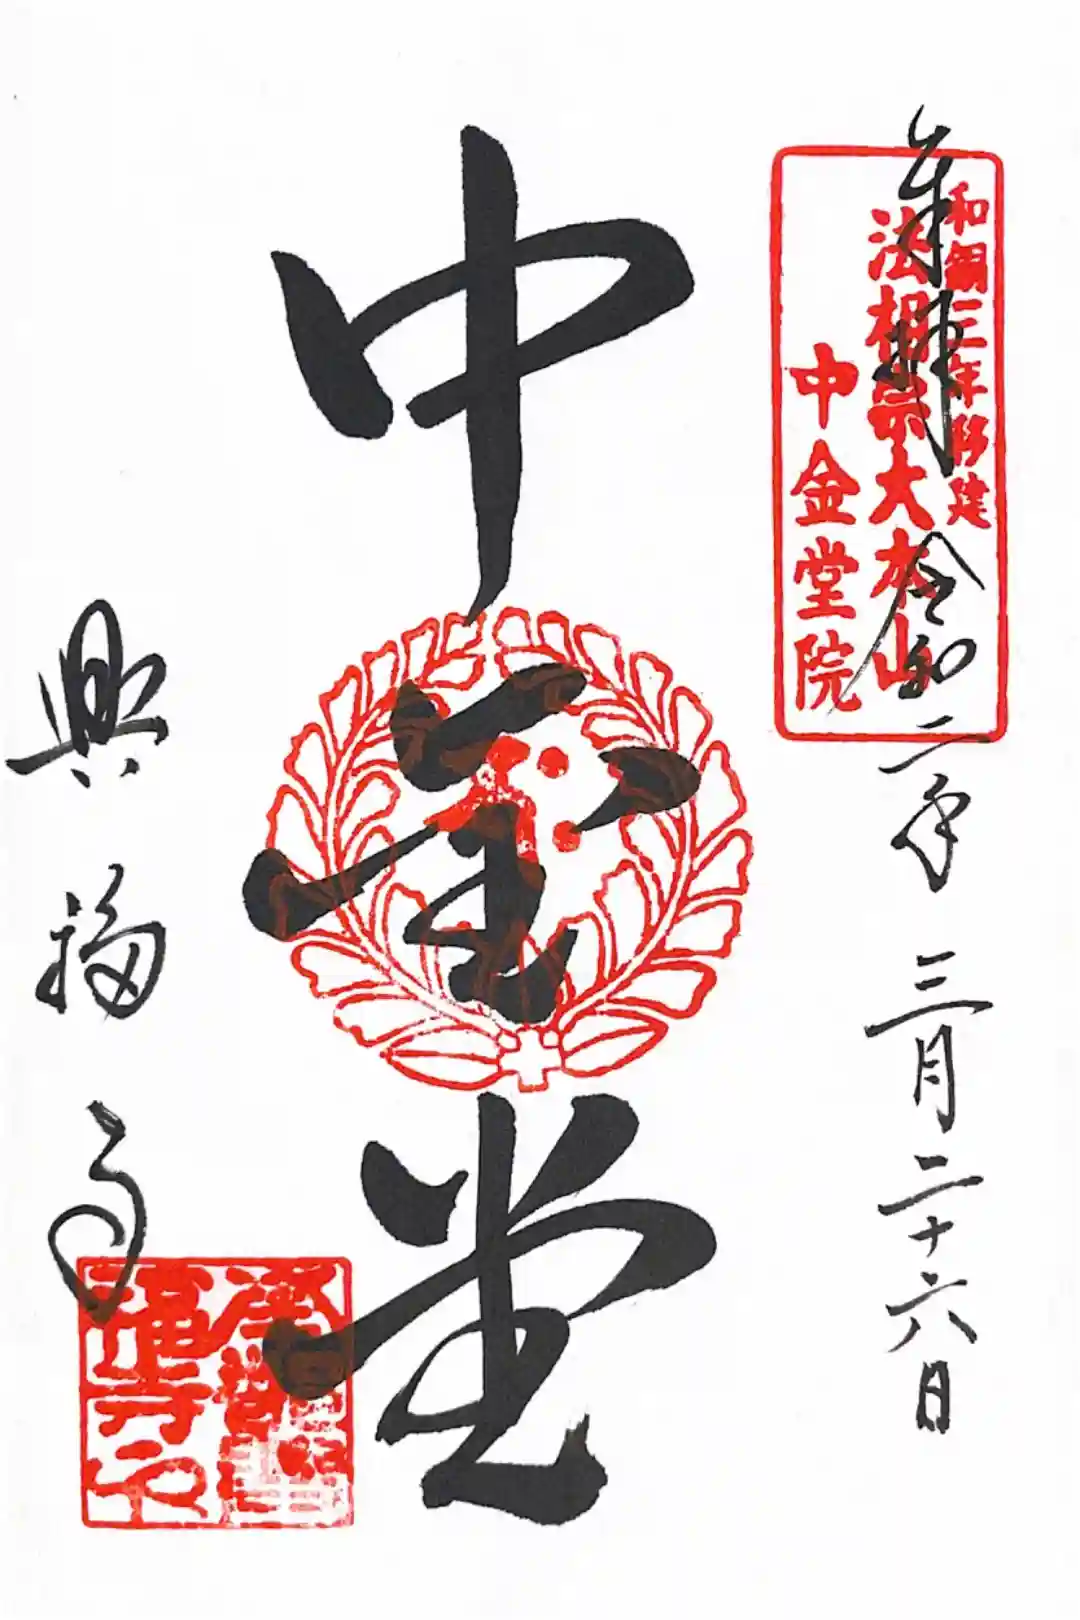 奉拝
令和二年三月二十六日
和銅三年移建
法相宗大本山
中金堂院
中金堂
興福寺